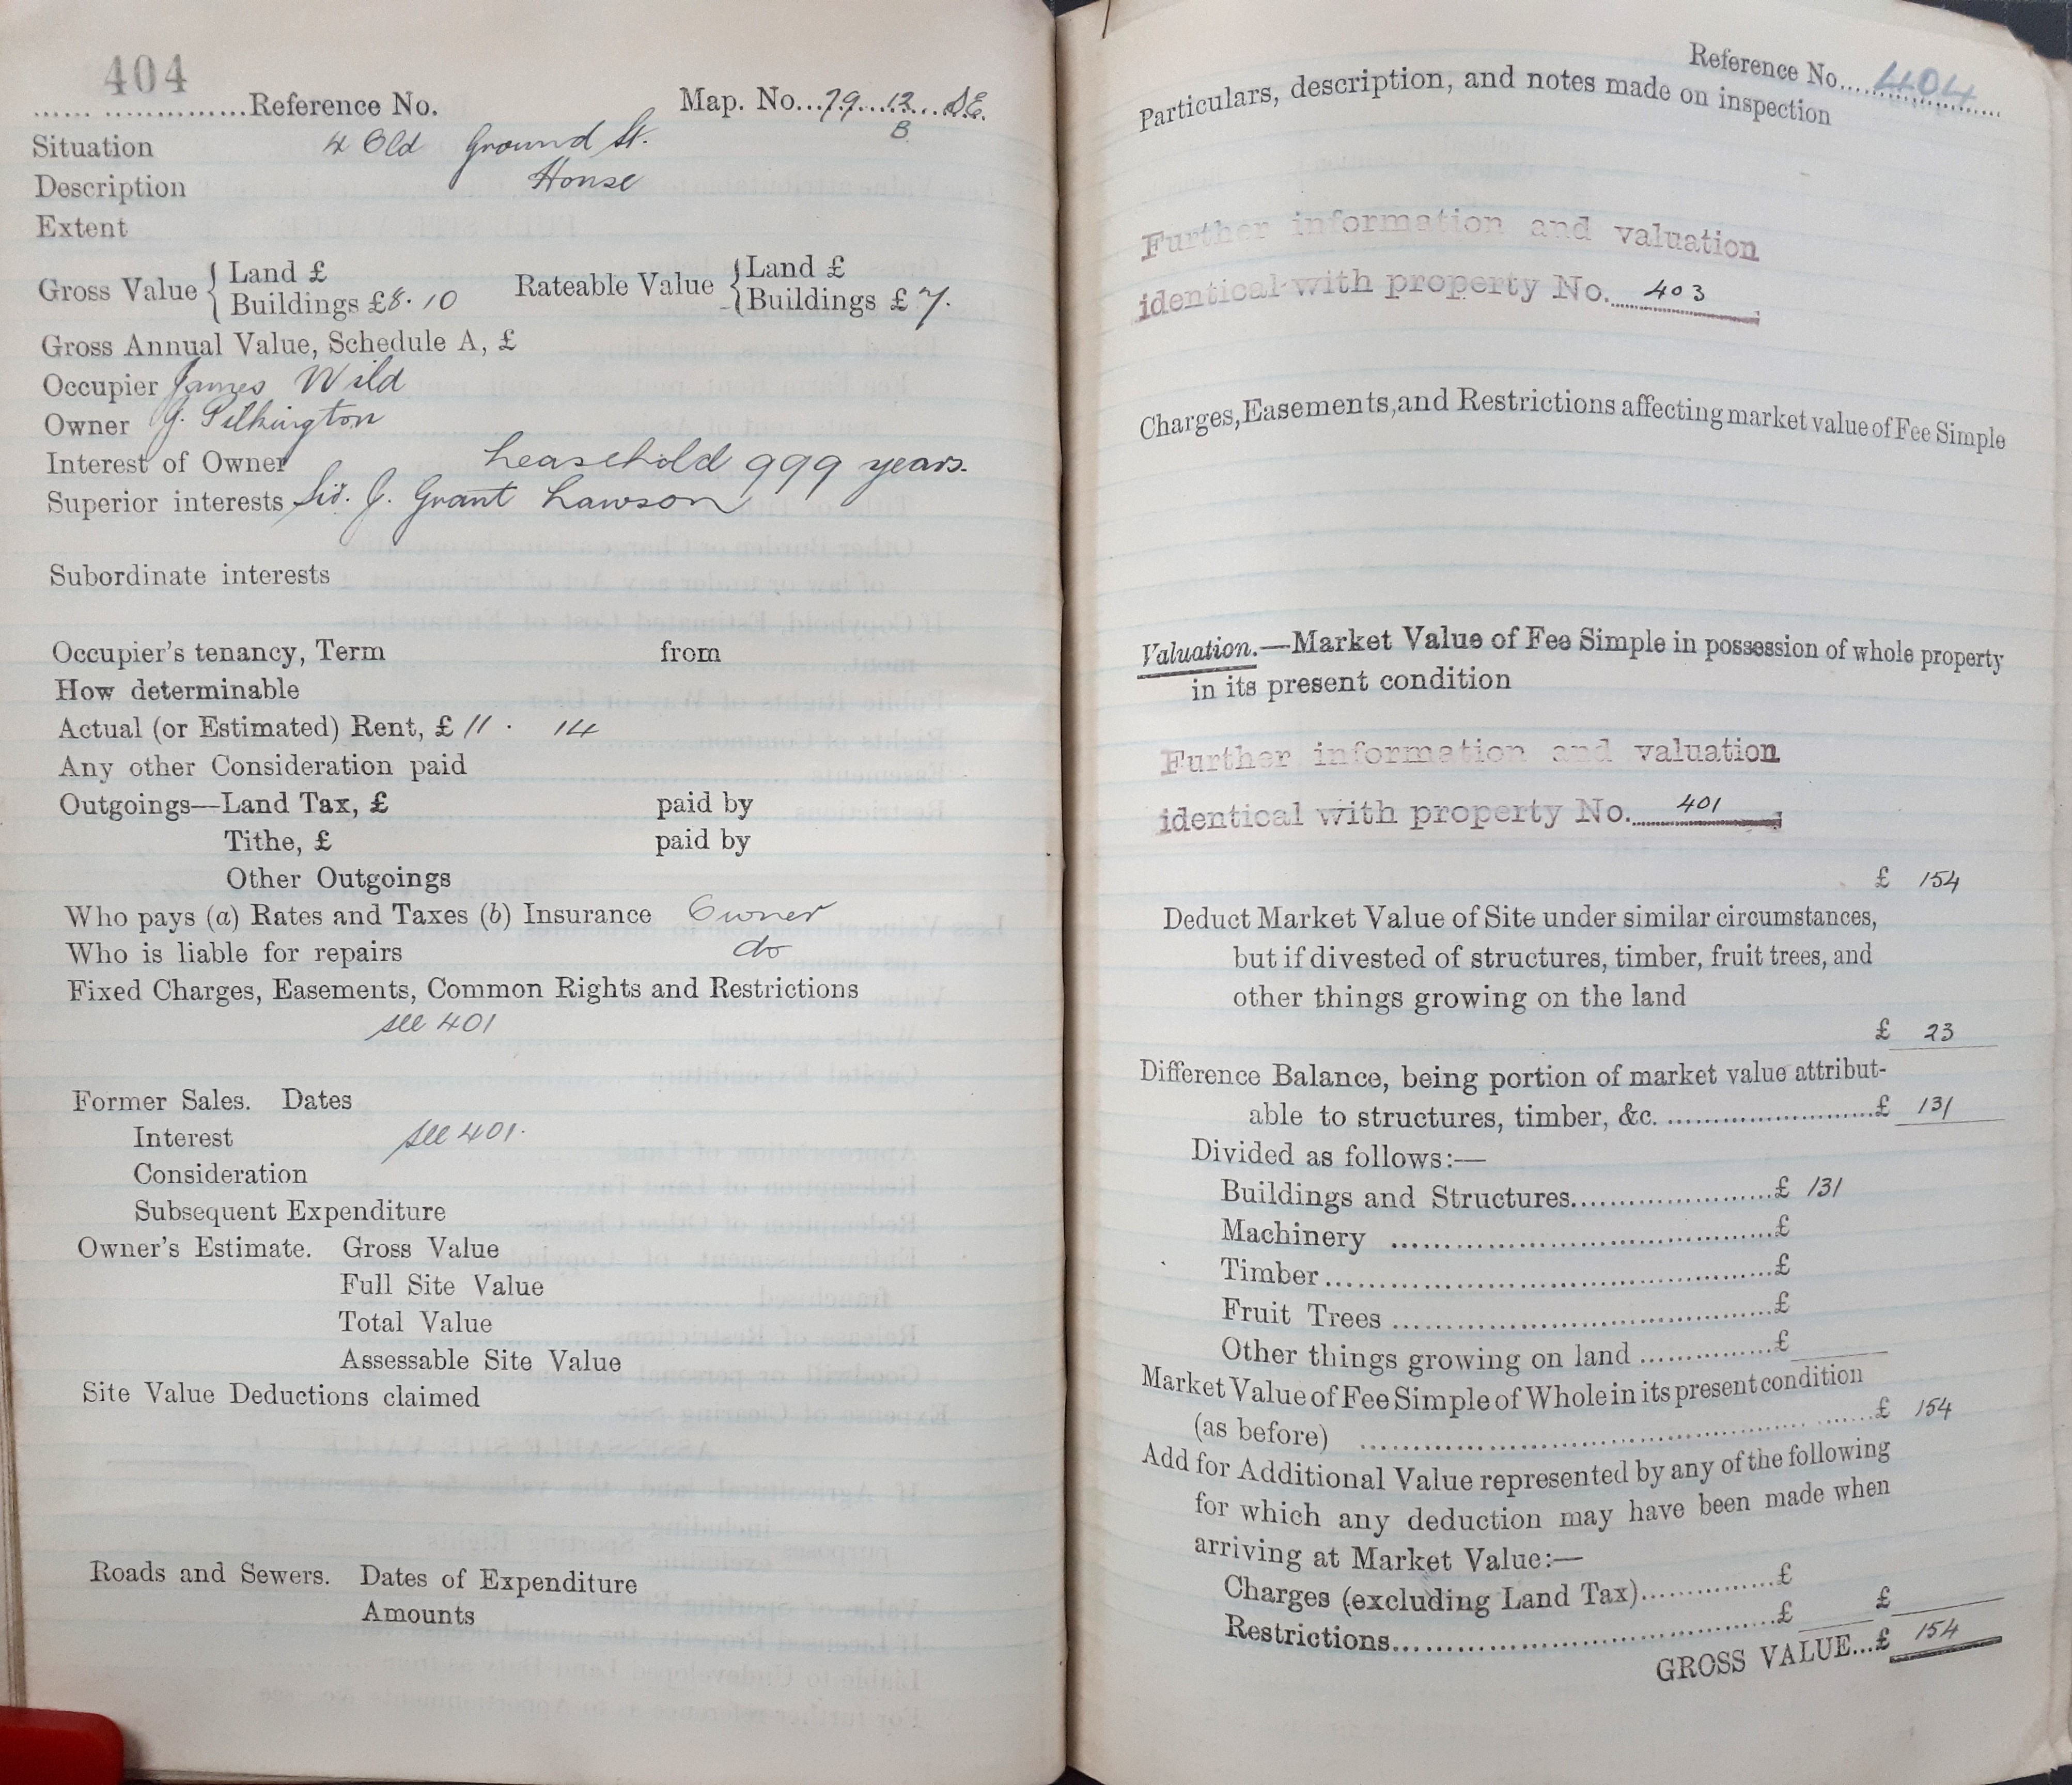 404
...... ..............Reference No. Map. No...79...12....S.E.
B
Situation 4 Old Ground St.
Description House
Extent
Gross Value { Land £ Rateable Value { Land £
Buildings £8.10 Buildings £ 7.
Gross Annual Value, Schedule A, £
Occupier James Wild
Owner J. Pilkington
Interest of Owner Leasehold 999 years.
Superior interests Sir. J. Grant Lawson
Subordinate interests
Occupier's tenancy, Term from
How determinable
Actual (or Estimated) Rent, £ 11 . 14
Any other Consideration paid
Outgoings—Land Tax, £ paid by
Tithe, £ paid by
Other Outgoings
Who pays (a) Rates and Taxes (b) Insurance Owner
Who is liable for repairs do
Fixed Charges, Easements, Common Rights and Restrictions
see 401
Former Sales. Dates
Interest see 401.
Consideration
Subsequent Expenditure
Owner's Estimate. Gross Value
Full Site Value
Total Value
Assessable Site Value
Site Value Deductions claimed
Roads and Sewers. Dates of Expenditure
Amounts
Reference No. 404
Particulars, description, and notes made on inspection
Further information and valuation
identical with property No. 403
Charges, Easements, and Restrictions affecting market value of Fee Simple
Valuation.—Market Value of Fee Simple in possession of whole property
in its present condition
Further information and valuation
identical with property No. 401
£ 154
Deduct Market Value of Site under similar circumstances,
but if divested of structures, timber, fruit trees, and
other things growing on the land
£ 23
Difference Balance, being portion of market value attribut-
able to structures, timber, &c. ........................£ 131
Divided as follows:—
Buildings and Structures.......................£ 131
Machinery ...........................................£
Timber..................................................£
Fruit Trees ..........................................£
Other things growing on land ...............£
Market Value of Fee Simple of Whole in its present condition
(as before) ..................................................£ 154
Add for Additional Value represented by any of the following
for which any deduction may have been made when
arriving at Market Value:—
Charges (excluding Land Tax)..............£
Restrictions..........................................£ £
GROSS VALUE...£ 154